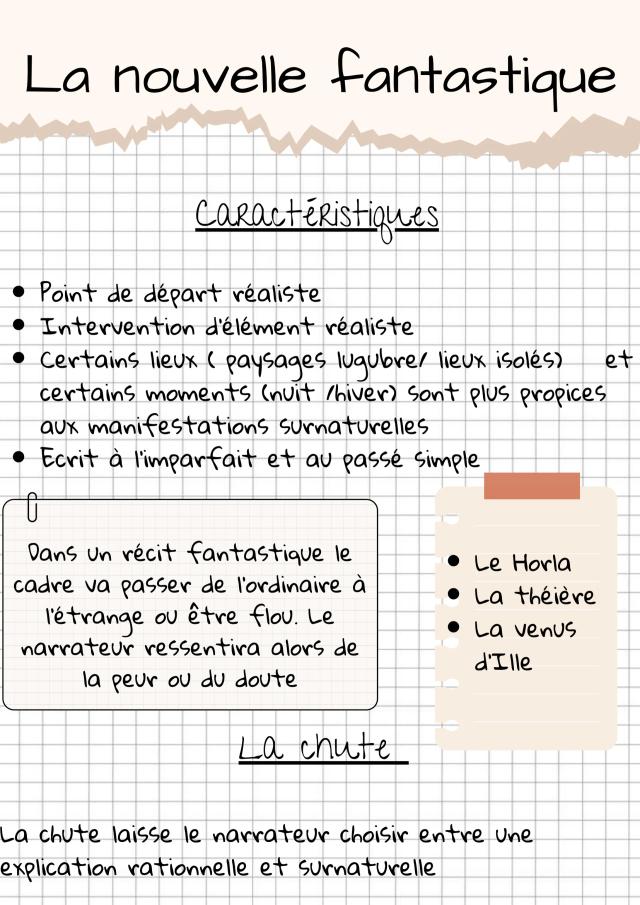 La nouvelle fantastique
Caractéristiques
• Point de départ réaliste
• Intervention d'élément réaliste
• Certains lieux ( paysages lugubre/ lieux isolés) et
certains moments (nuit /hiver) sont plus propices
aux manifestations surnaturelles
• Ecrit à l'imparfait et au passé simple
Dans un récit fantastique le
cadre va passer de l'ordinaire à
l'étrange ou être flou. Le
narrateur ressentira alors de
la peur ou du doute
• Le Horla
• La théière
• La venus
d'Ille
La chute
La chute laisse le narrateur choisir entre une
explication rationnelle et surnaturelle